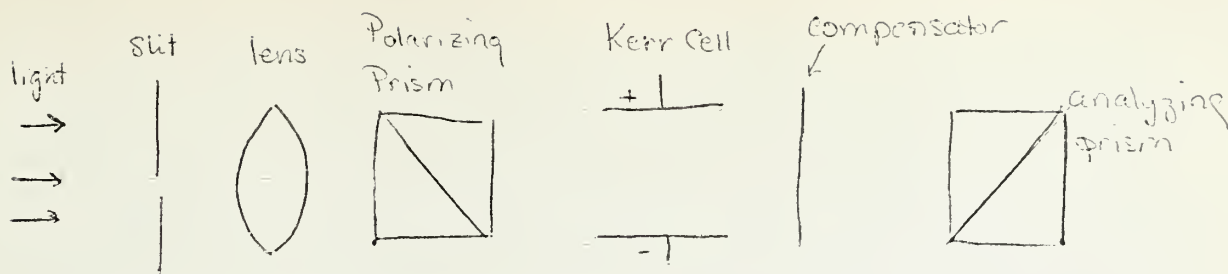 light
slit
lens
Polarizing
Prism
Kerr Cell
+
-
compensator
analyzing
prism